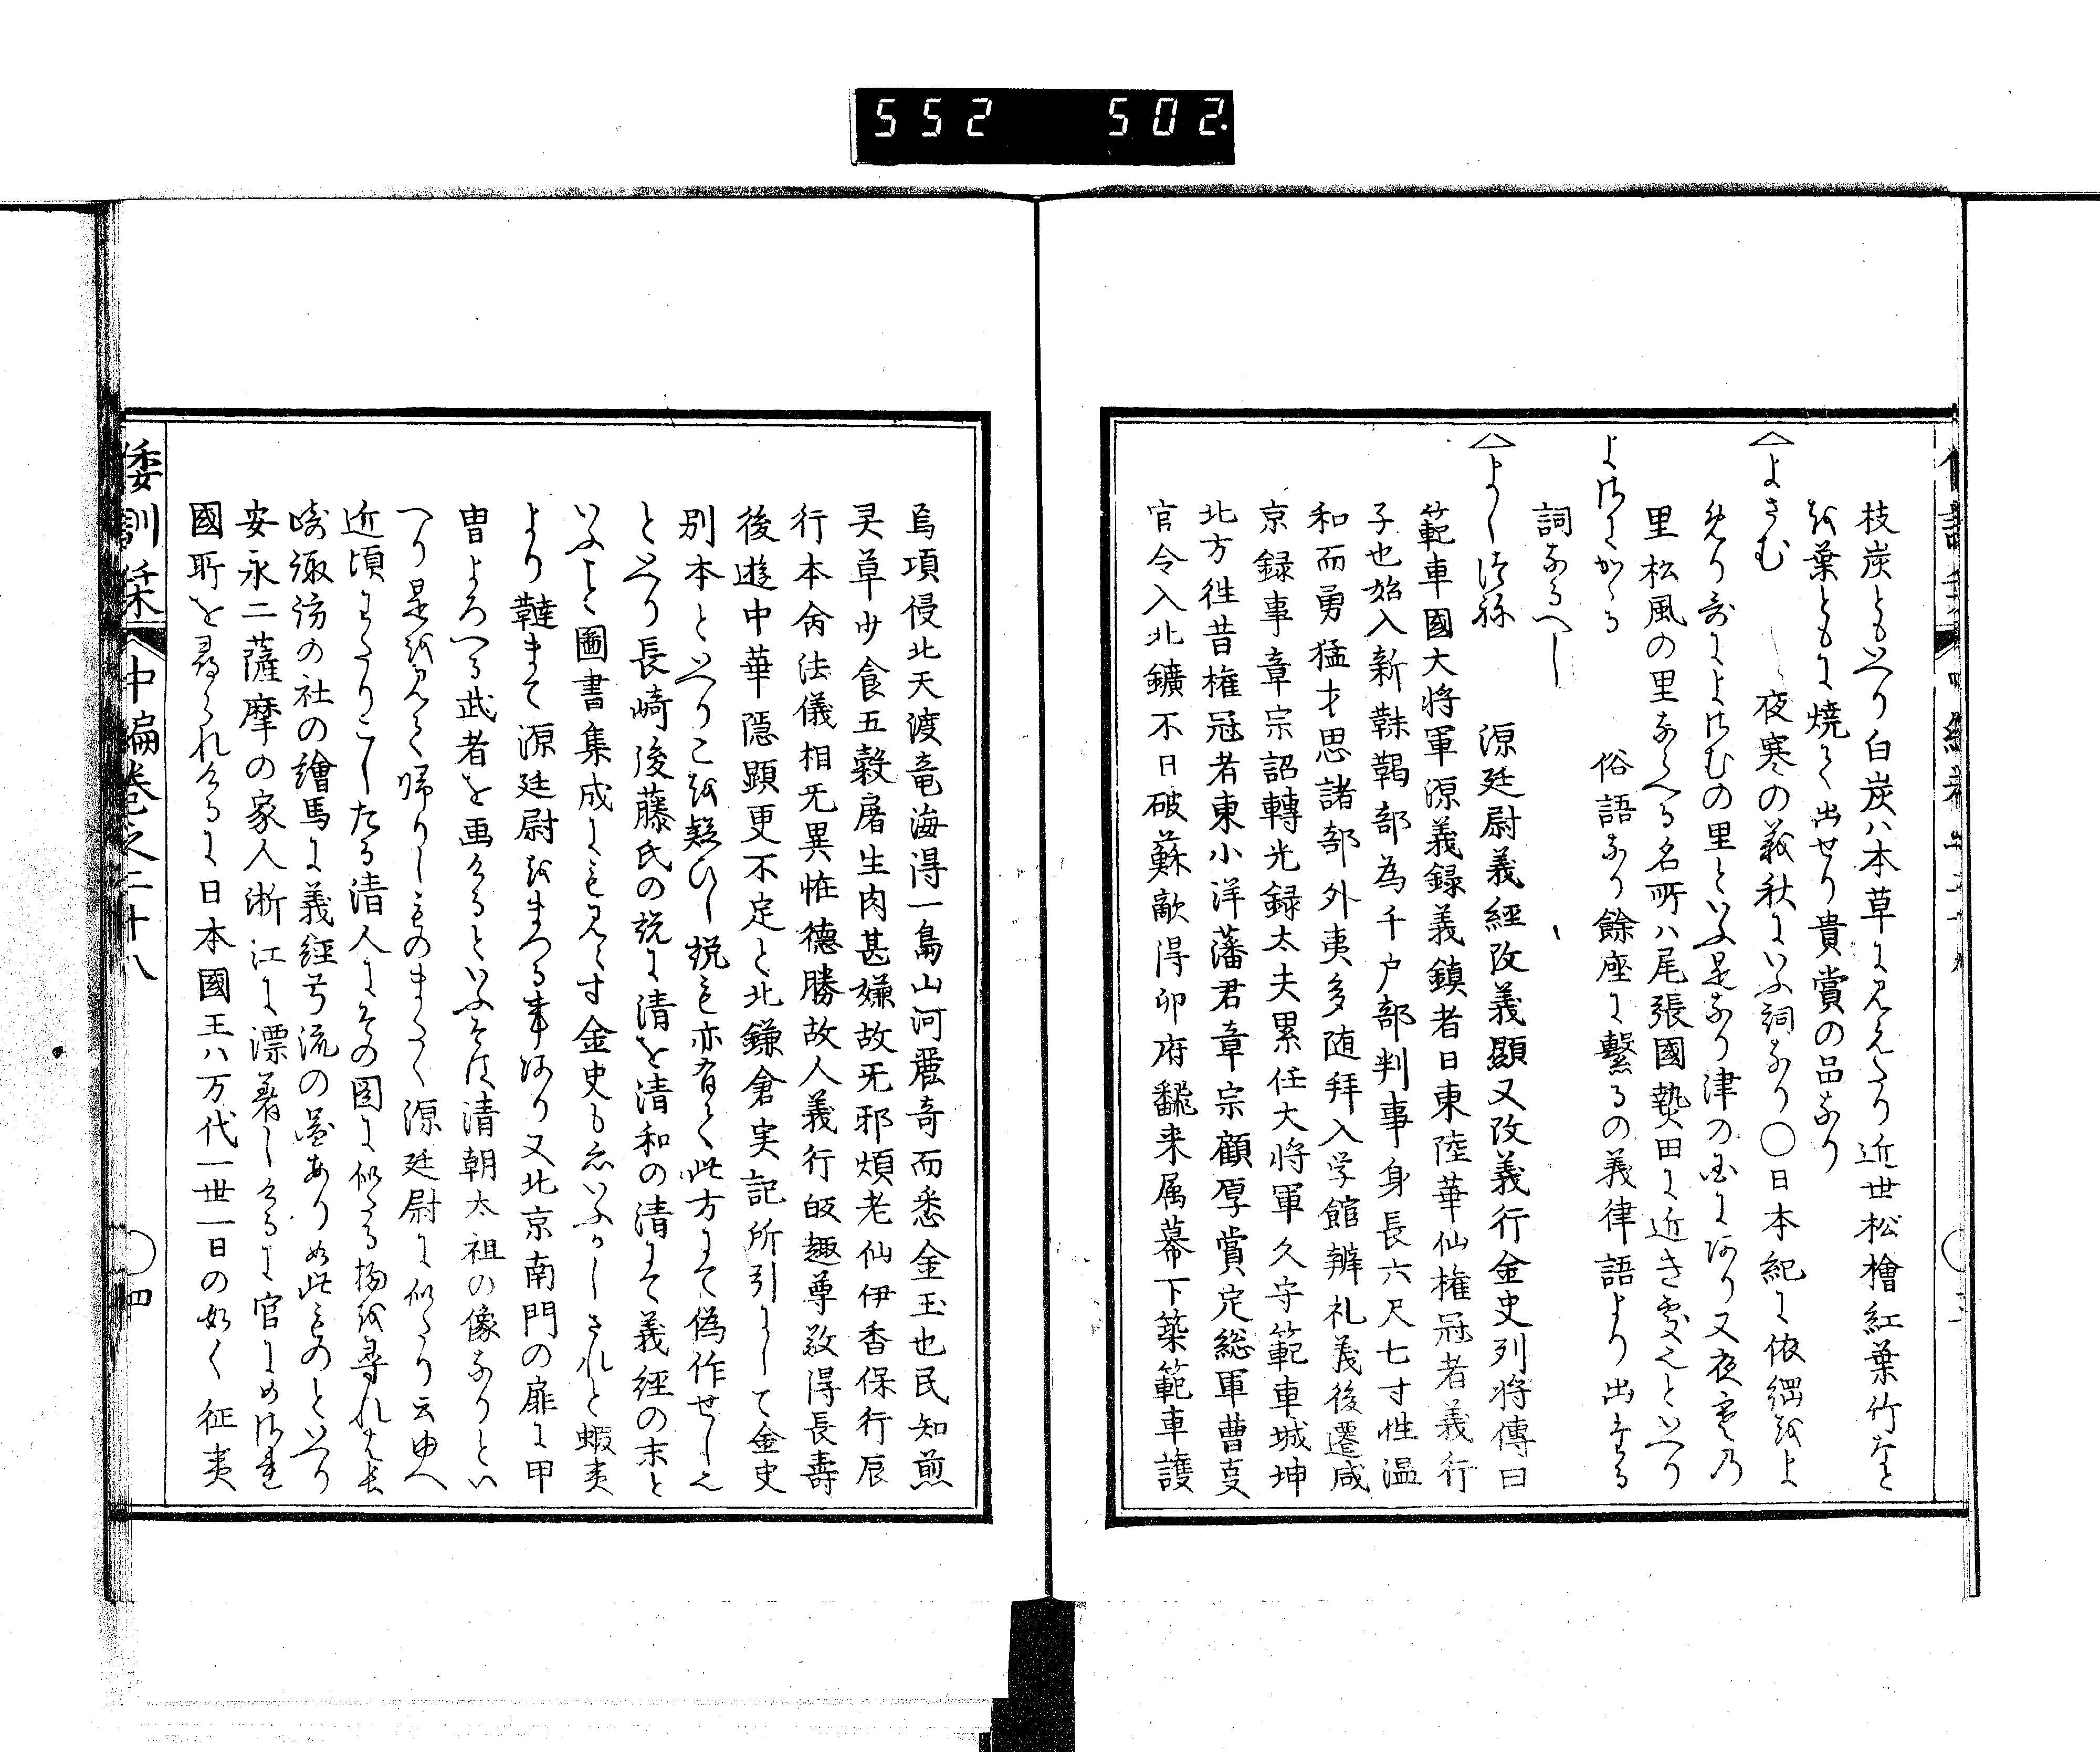 552 502.
枝炭ともいへり白炭ハ本草に見えたり近世松檜紅葉竹なと
を葉ともに焼て出せり貴賞の品なり
よさむ 夜寒の義秋にいふ詞なり〇日本紀に依網をよ
さみといふ是なり津の国にあり又夜寒乃
里松風の里ならへる名所ハ尾張國熱田に近き處之といへり
よさにかゝる 俗語なり餘座に繋るの義律語より出たる
詞なるへし
よしつね 源廷尉義經改義顕又改義行金史列将傳曰
範車國大将軍源義録義鎮者日東陸華仙権冠者義行
子也始入新靺鞨部為千户部判事身長六尺七寸性温
和而勇猛才思諸部外夷多随拜入学館辨礼義後遷咸
京録事章宗詔轉光録太夫累任大将軍久守範車城坤
北方徃昔権冠者東小洋藩君章宗顧厚賞定総軍曹㕝
官令入北鑛不日破蘇敵得卯府飜来属幕下築範車護
爲項侵北天渡竜海得一島山河麗奇而悉金玉也民知煎
灵草少食五穀屠生肉甚嫌故旡邪煩老仙伊香保行辰
行本舎法儀相旡異恠德勝故人義行皈趣尊敬得長壽
後遊中華隠顕更不定と北鎌倉実記所引にして金史
別本といへりこを疑ひし説も亦有て此方にて偽作せし之
といへり長崎後藤氏の説に清を清和の清にて義經の末と
いふこと圖書集成にも見えす金史も亦いふかしされと蝦夷
より韃まて源廷尉をまつる事あり又北京南門の扉に甲
冑よろへる武者を画けるといふそは清朝太祖の像なりとい
へり是を見て帰りしものまさしく源廷尉に似たり云由へ
近頃にわたりこしたる清人にその圖に似たる物を尋れは長
崎諏訪の社の繪馬に義經弓流の圖あり如此ものといへり
安永二薩摩の家人淅江に漂着しけるに官にめされ
國所を尋られけるに日本國王ハ万代一世一日の如く征夷
倭訓栞 中編巻之二十八 〇四